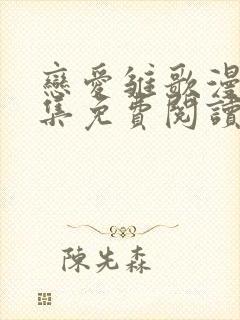 戀愛雛歌漫
集免費閱讀
陳先森